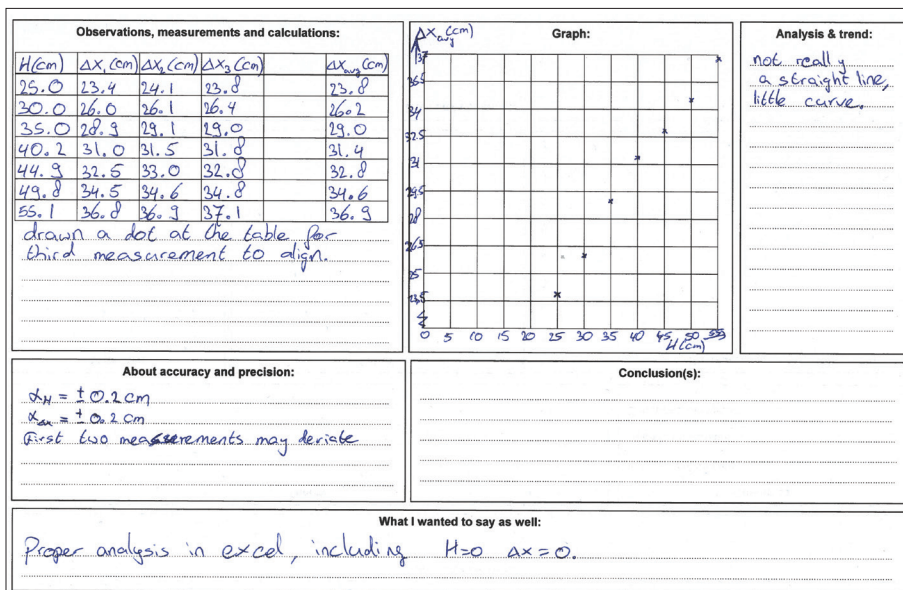 Observations, measurements and calculations:
H(cm) Δx₁(cm) Δx₂(cm) Δx₃(cm) Δx_avg(cm)
25.0 23.4 24.1 23.8 23.8
30.0 26.0 26.1 26.4 26.2
35.0 28.9 29.1 29.0 29.0
40.2 31.0 31.5 31.8 31.4
44.9 32.5 33.0 32.8 32.8
49.8 34.5 34.6 34.8 34.6
55.1 36.8 36.9 37.1 36.9
drawn a dot at the table for
third measurement to align.
Graph:
Δx_avg (cm)
37
34
32.5
31
29.5
28
26.5
25
23.5
0 5 10 15 20 25 30 35 40 45 50
H(cm)
Analysis & trend:
not really
a straight line,
little curve.
About accuracy and precision:
α_H = ± 0.2 cm
α_Δx = ± 0.2 cm
First two measurements may deviate
Conclusion(s):
What I wanted to say as well:
Proper analysis in excel, including H=0 Δx=0.